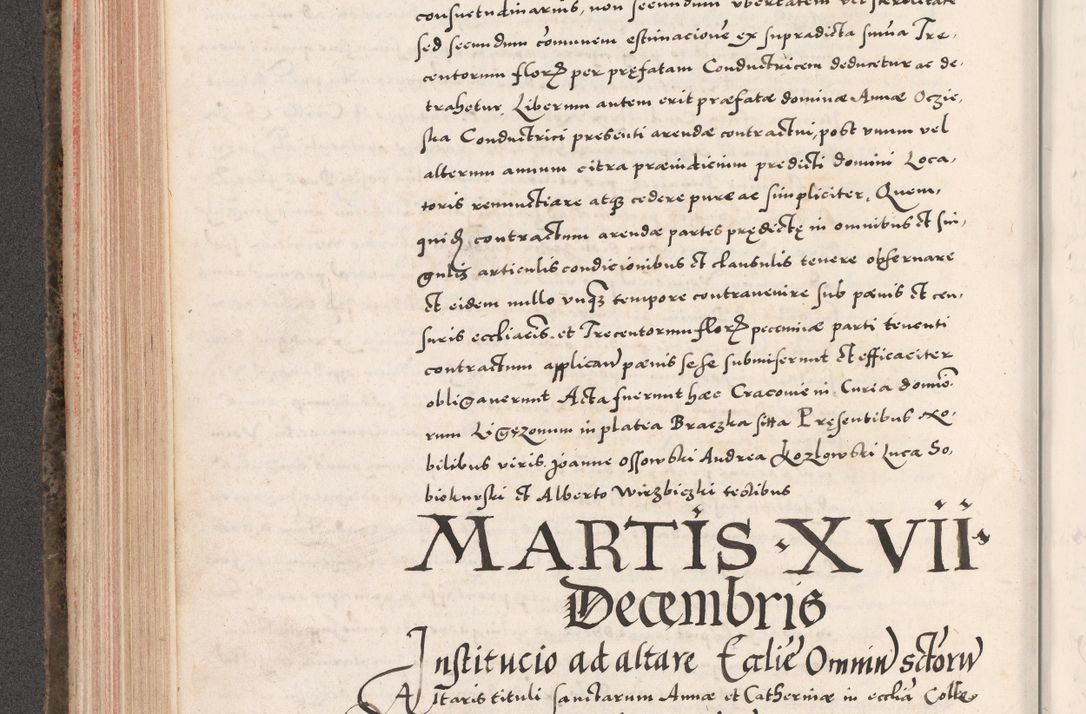 consuetudinarius, non secundum vbertatem vel sterilitatē
sed secundum cōmunem estimacione ex supradicta sum̄a Tre,
centorum florꝝ per pręfatam Conductricem deducetur ac de,
trahetur, Liberum autem erit præfatæ dominæ Annæ Oczie,
ska Conductrici presenti arendæ contractui, post vnum vel
alterum annum citra præiudicium predicti domini Loca,
toris renunctiare atqꝫ cedere pure ac simpliciter, Quem,
quidē contractum arendæ partes prędictę in omnibus et sin,
gulis articulis condicionibus et clausulis tenere obseruare
et eidem nullo vnqꝫ tempore contrauenire sub pænis et cen,
suris eccliacis. et Trecentorum florꝝ pecuniæ parti tenenti
contractum applican pænis sese submiserunt et efficaciter
obligauerunt Acta fuerunt hæc Cracouie in Curia domīo.
rum Ligęzonum in platea Braczka sitta Pręsentibus No,
bilibus viris, Joanne Ossowski Andrea Kozlowski Luca So,
biekurski et Alberto Wirzbiczki testibus
MARTIS · XVII ·
Decembris
Institucio ad altare Ecclie Omniū sctorū
Altaris tituli sanctarum Annæ et Catherinæ in ecclia Colle